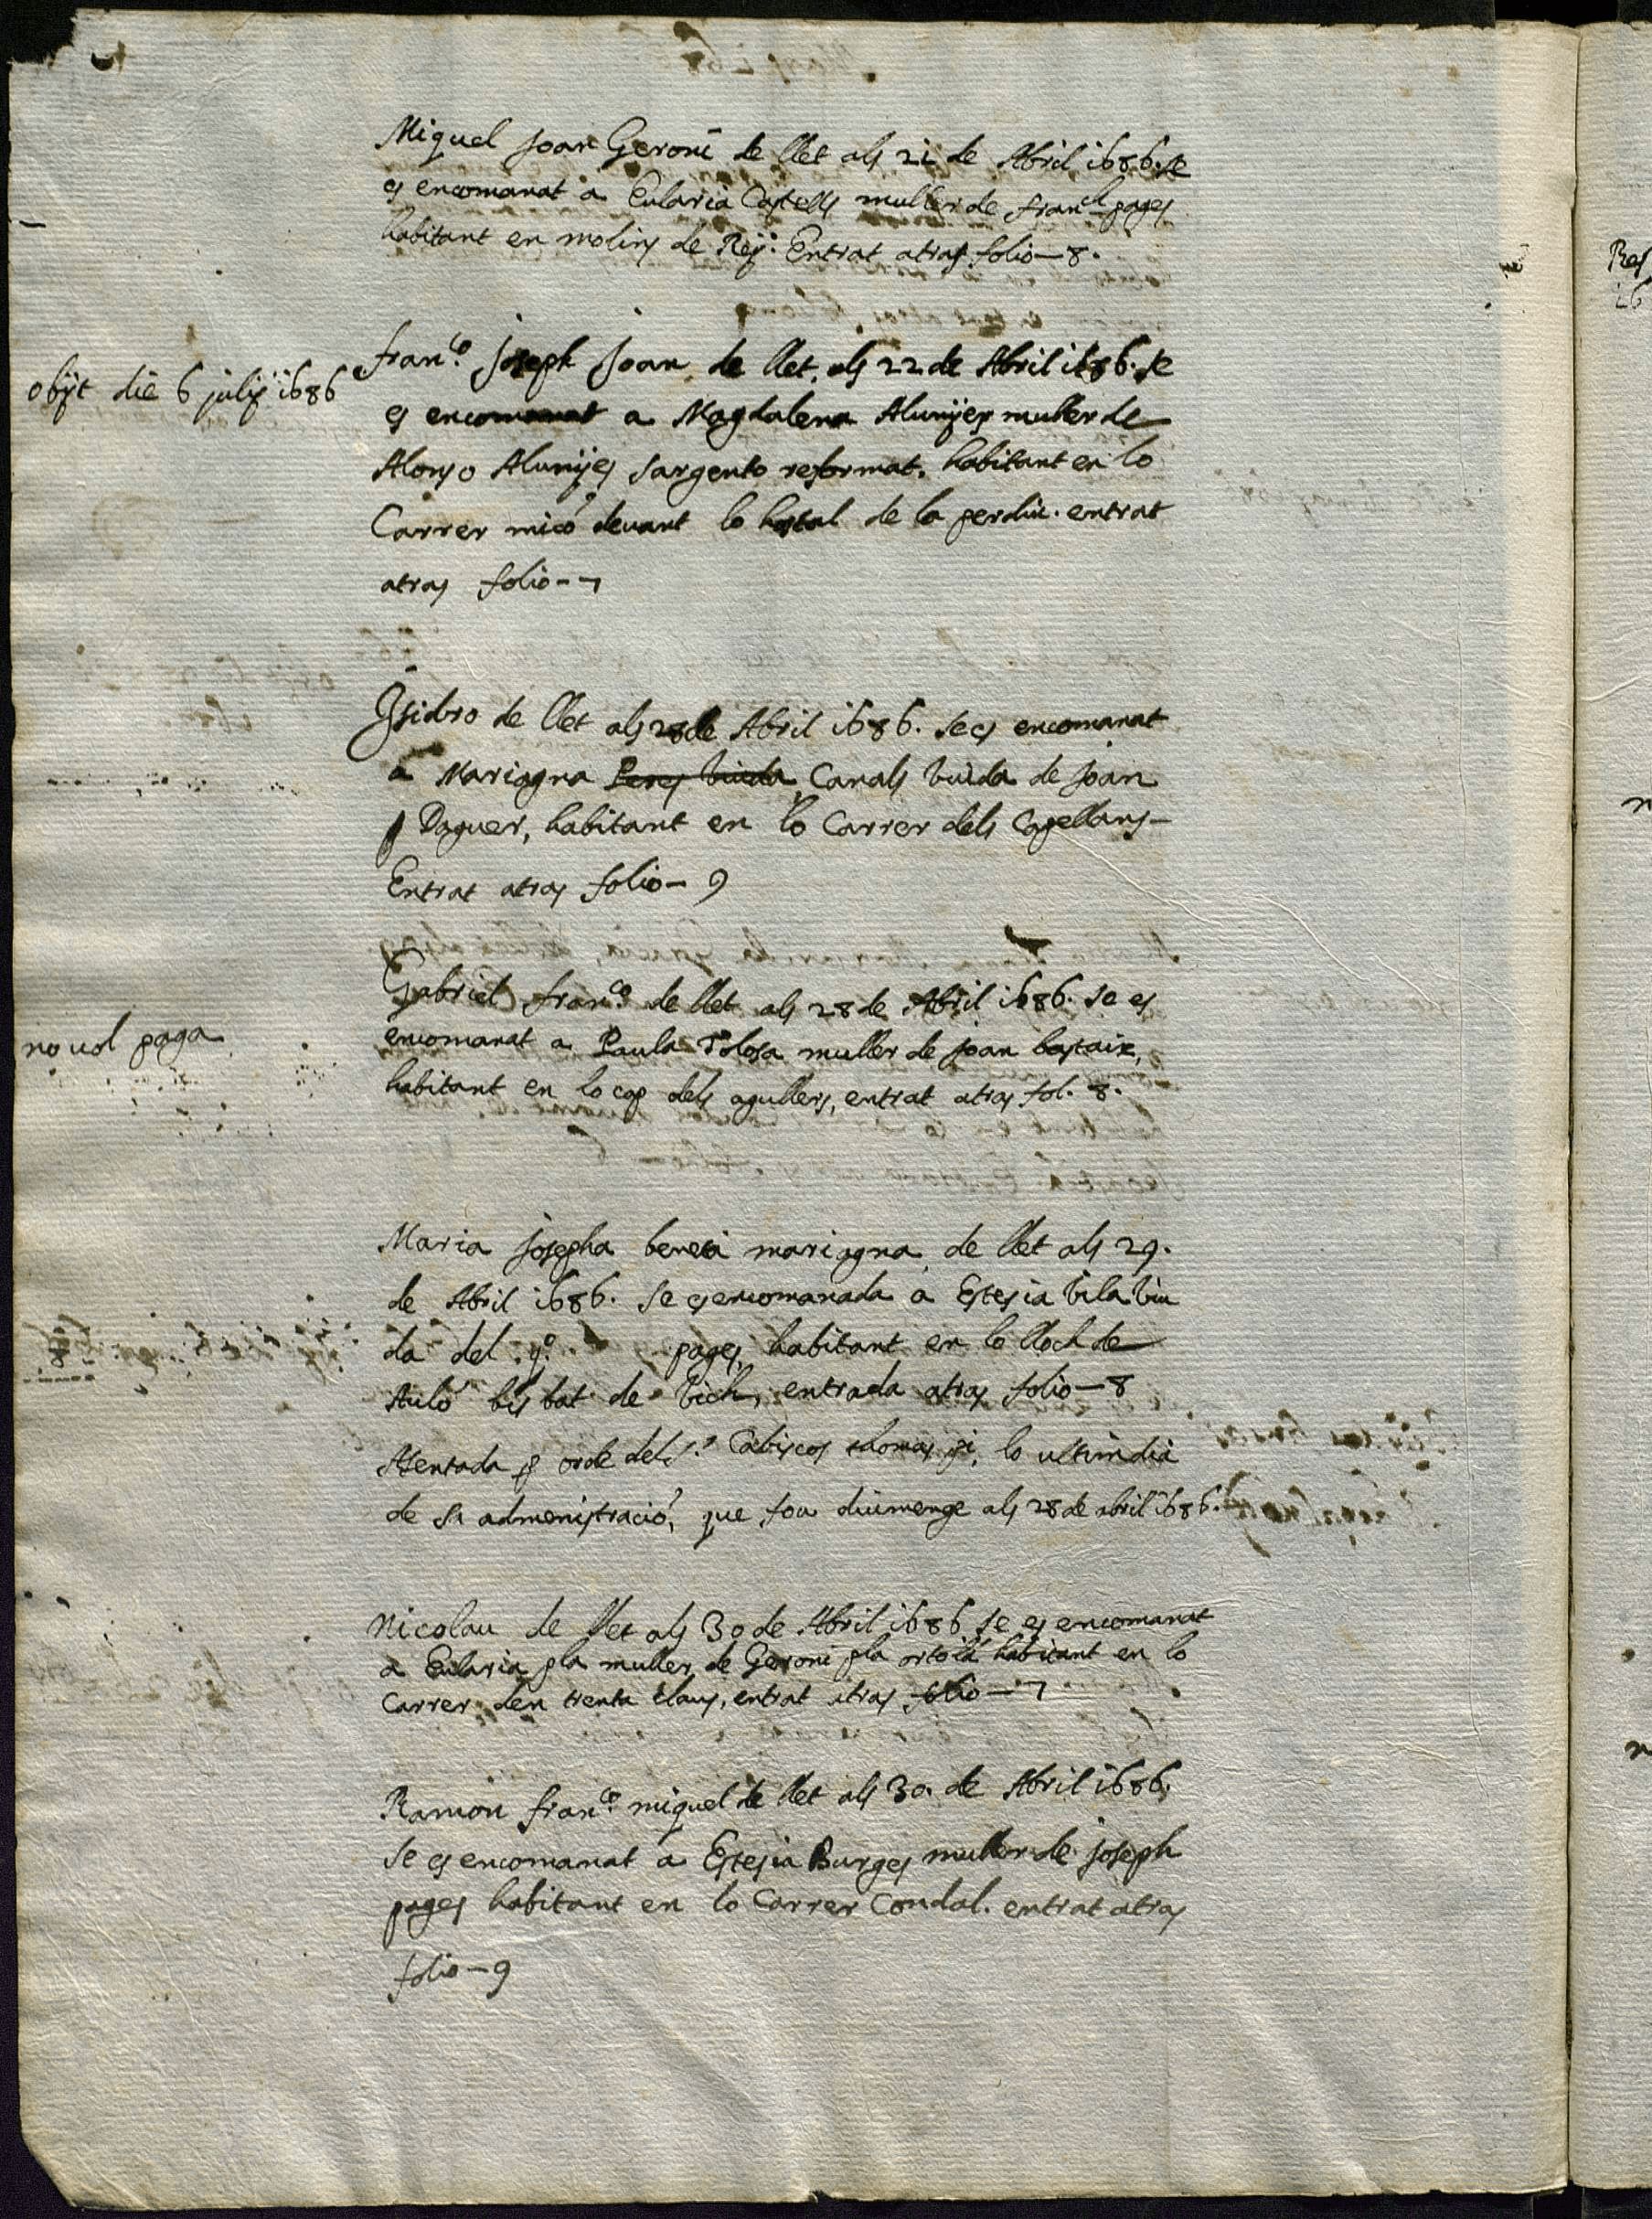 Miquel Joan Geroni de llet als 21 de Abril 1686. se
es encomanat a Eularia Castells muller de franch pages
habitant en molins de Reÿ. Entrat atras folio - 8.
obijt die 6 julij 1686
franco. Joseph Joan de llet, als 22 de Abril 1686. se
es encomanat a Magdalena Alunijes muller de
Alonso Alunijes sargento reformat. habitant en lo
Carrer micó devant lo hostal de la perdiu. entrat
atras folio - 7
Isidro de llet als 28 de Abril 1686. se es encomanat
a Mariagna Peres viuda Canals viuda de Joan
Daguer, habitant en lo Carrer dels Capellans -
Entrat atras folio - 9
Gabriel franco. de llet als 28 de Abril 1686. se es
no vol paga
encomanat a Paula Tolosa muller de Joan bastaix,
habitant en lo cap dels agullers, entrat atras fol. 8.
Maria Josepha mariagna de llet als 29.
de Abril 1686. se es encomanada a Estesia Vila viu
da del qo. pages, habitant en lo lloch de
Auló bisbat de Vich, entrada atras folio - 8
Asentada p orde del Sr. thomas pi, lo ultim dia
de sa administració, que fou diumenge als 28 de abril 1686.
Nicolau de llet als 30 de Abril 1686 se es encomanat
a Eularia pla muller de Geroni pla ortolá habitant en lo
Carrer den trenta claus, entrat atras folio - 7
Ramon franco. miquel de llet als 30. de Abril 1686.
se es encomanat a Estesia Burges muller de Joseph
pages habitant en lo Carrer Condal. entrat atras
folio - 9